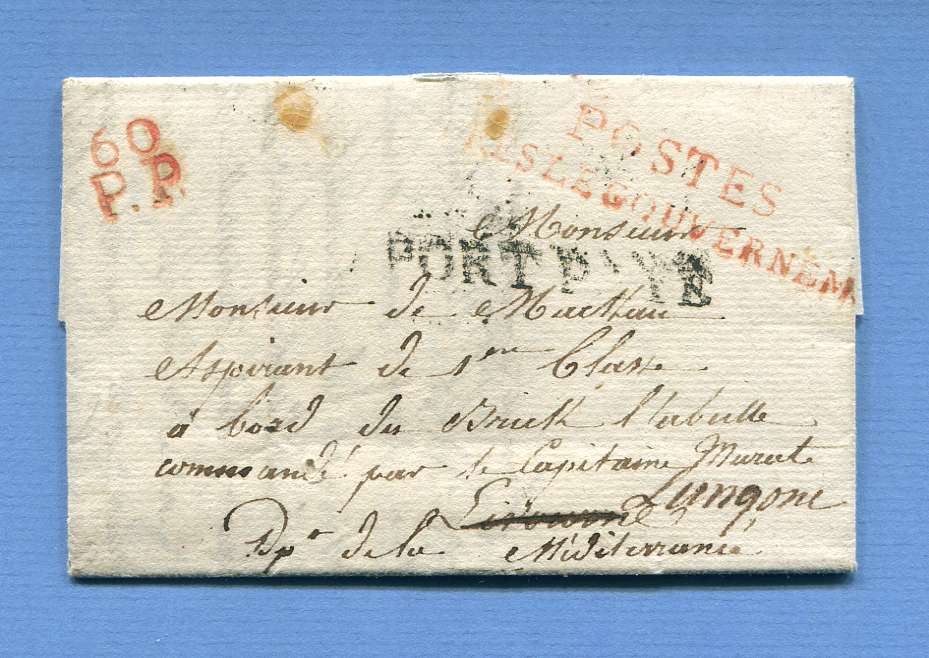 60
P.P.
POSTES
RLS LE GOUVERNEM
PORT PAYÉ
Monsieur
Monsieur de Mackau
Aspirant de 1ere Classe
à bord du Brick l'abeille
commandé par le Capitaine Murat
Livourne Lungone
Dpt de la Méditerranée